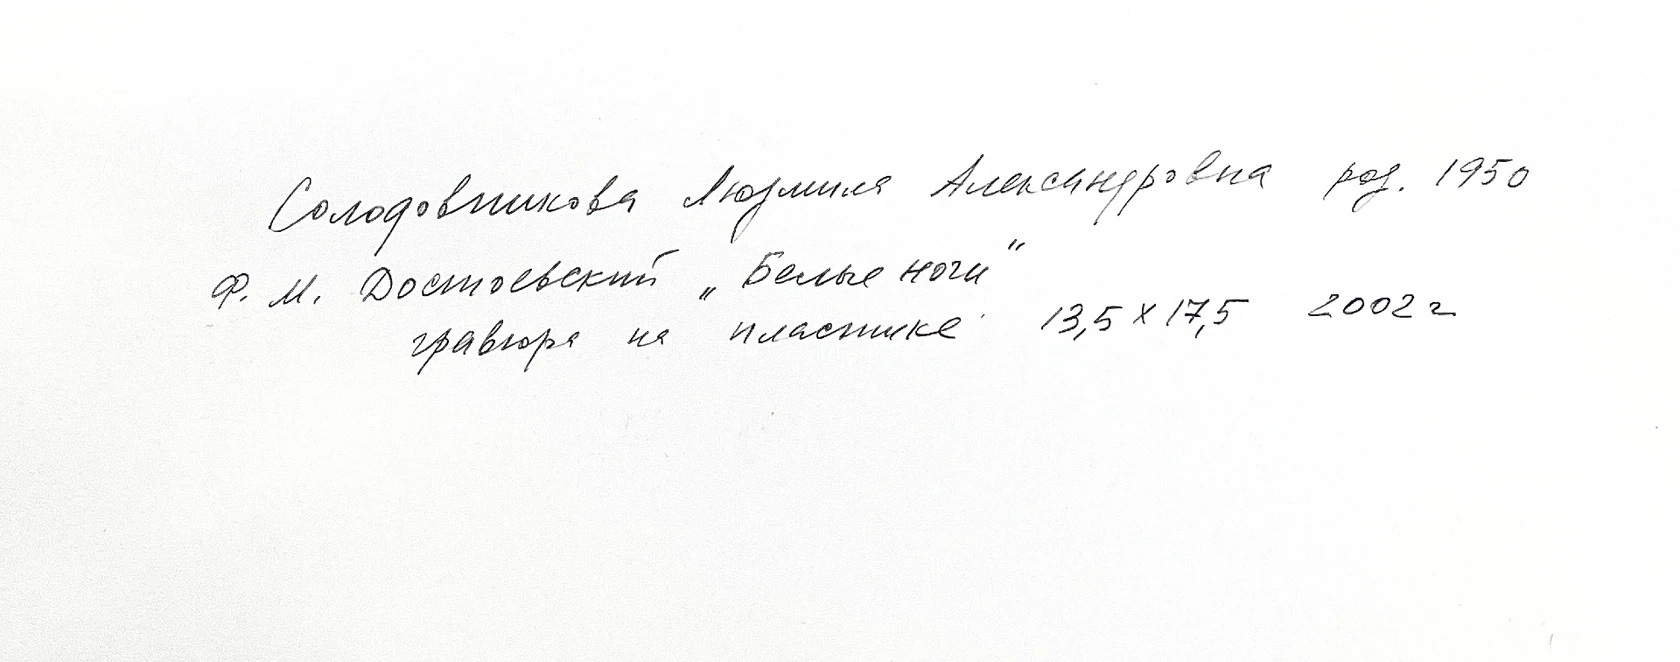 Солодовникова Людмила Александровна род. 1950
Ф. М. Достоевский „Белые ночи"
гравюра на пластике 13,5 x 17,5 2002 г